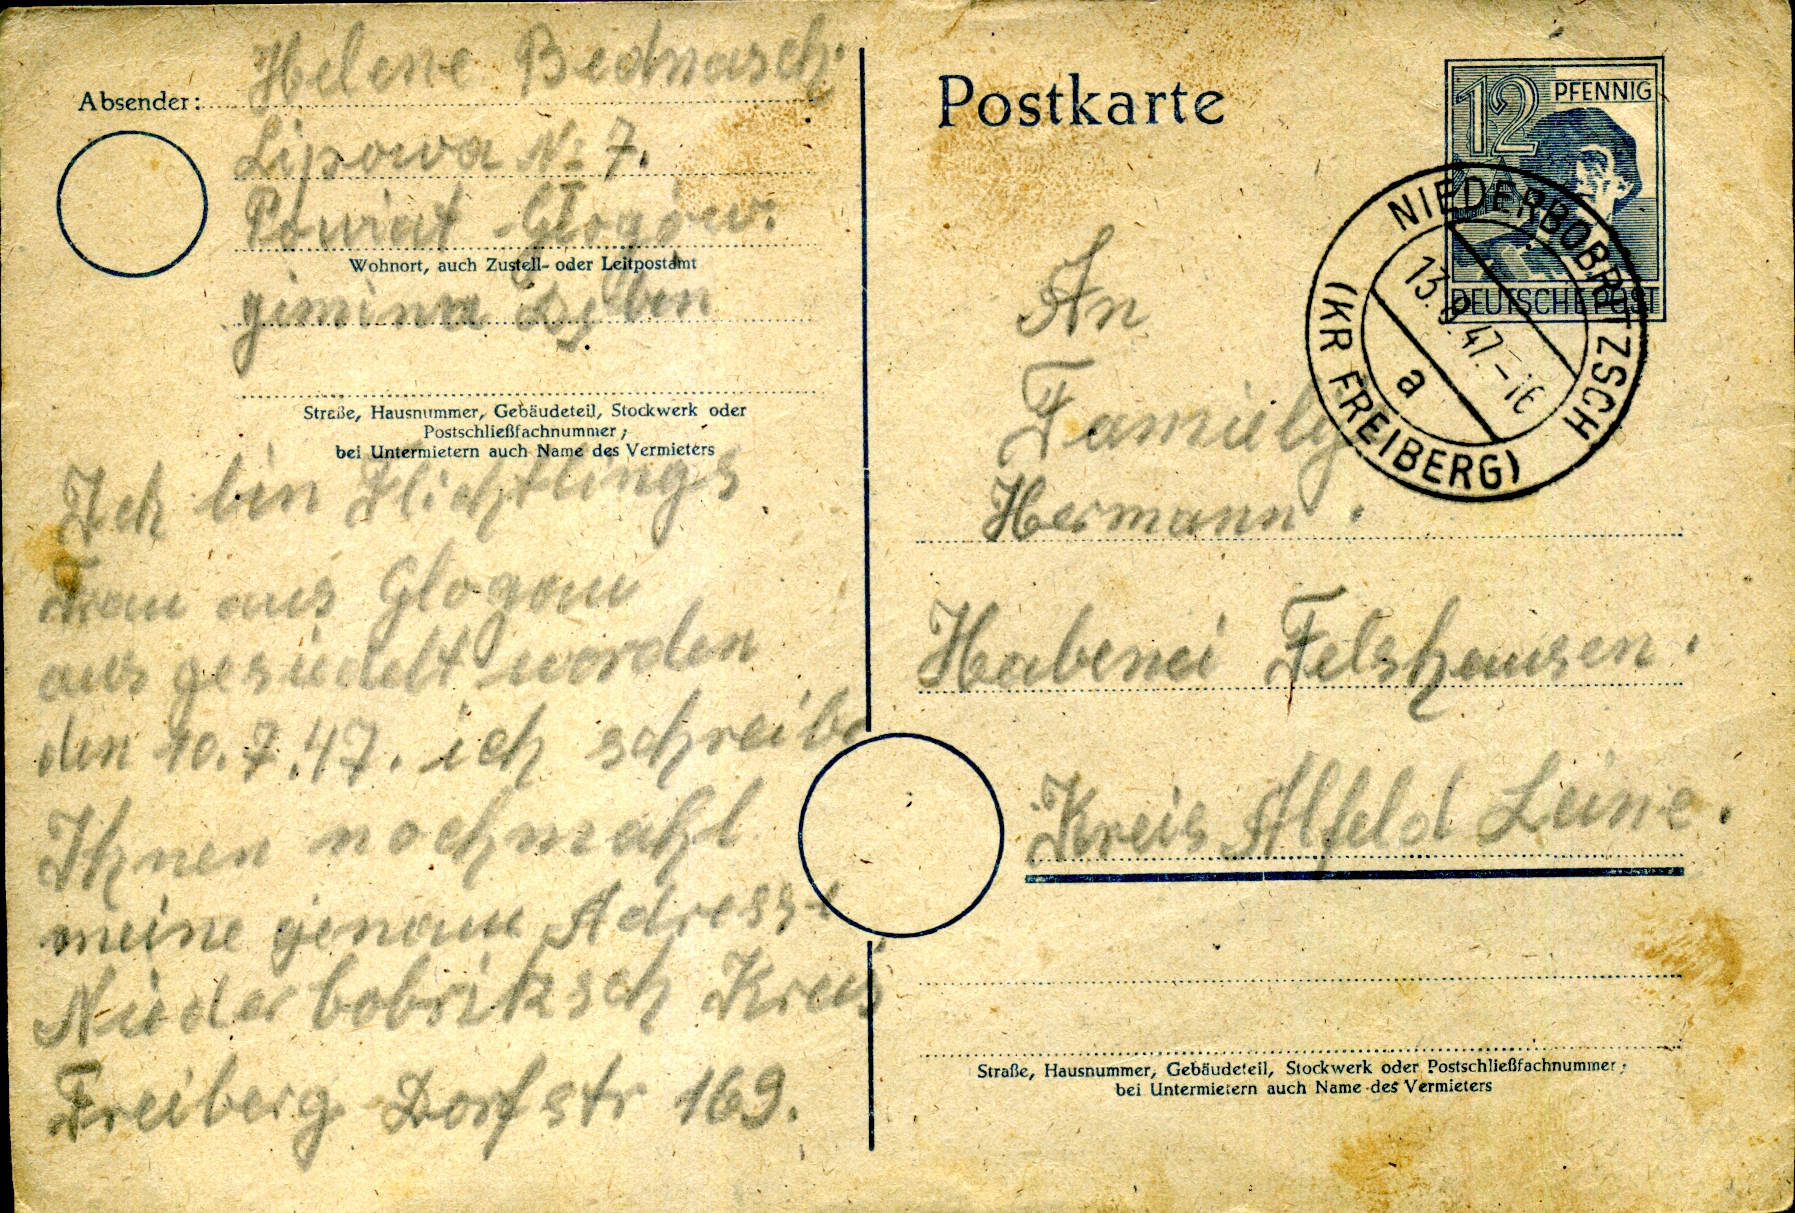 Helene Bednasch.
Absender:
Lipowa № 7.
Powiat Głogów.
Wohnort, auch Zustell- oder Leitpostamt
gimina
Straße, Hausnummer, Gebäudeteil, Stockwerk oder
Postschließfachnummer;
bei Untermietern auch Name des Vermieters
Ich bin Flichtlings
Frau aus Glogau
aus gesiedelt worden
den 10.7.47. ich schreibe
Ihnen nochmahl
meine genaue Adresse
Niederbobritzsch Kreis
Freiberg Dorfstr 169.
Postkarte
12 PFENNIG
DEUTSCHE POST
NIEDERBOBRITZSCH
(KR FREIBERG)
47.-16
a
An
Familie
Hermann.
Habenei Felshausen.
Kreis Alfeld Leine.
Straße, Hausnummer, Gebäudeteil, Stockwerk oder Postschließfachnummer;
bei Untermietern auch Name des Vermieters